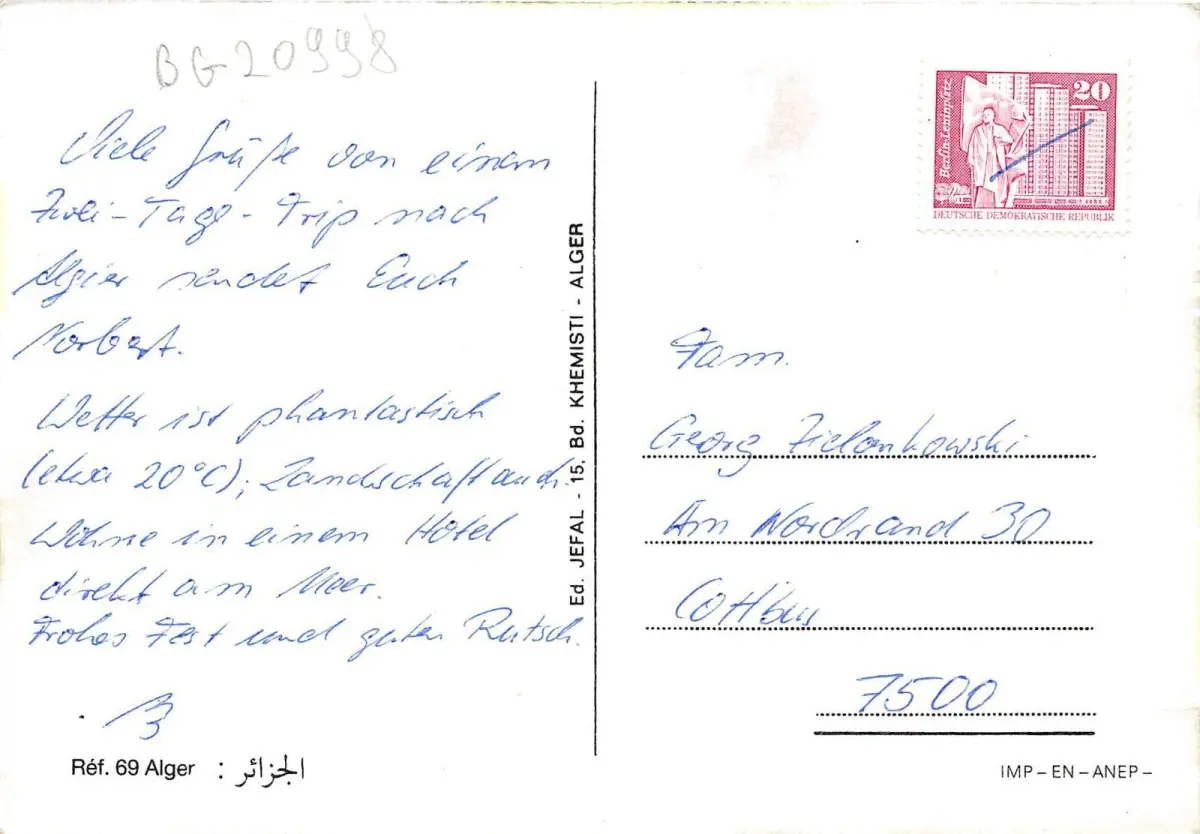 BG20998
Viele Grüße von einem
Zwei-Tage-Trip nach
Algier sendet Euch
Norbert.
Wetter ist phantastisch
(etwa 20°C); Landschaft auch.
Wohne in einem Hotel
direkt am Meer.
Frohes Fest und guten Rutsch.
Réf. 69 Alger : الجزائر
Ed. JEFAL - 15, Bd. KHEMISTI - ALGER
Berlin-Leninplatz
20
DEUTSCHE DEMOKRATISCHE REPUBLIK
Fam.
Georg Zielonkowski
Am Nordrand 30
Cottbus
7500
IMP – EN – ANEP –